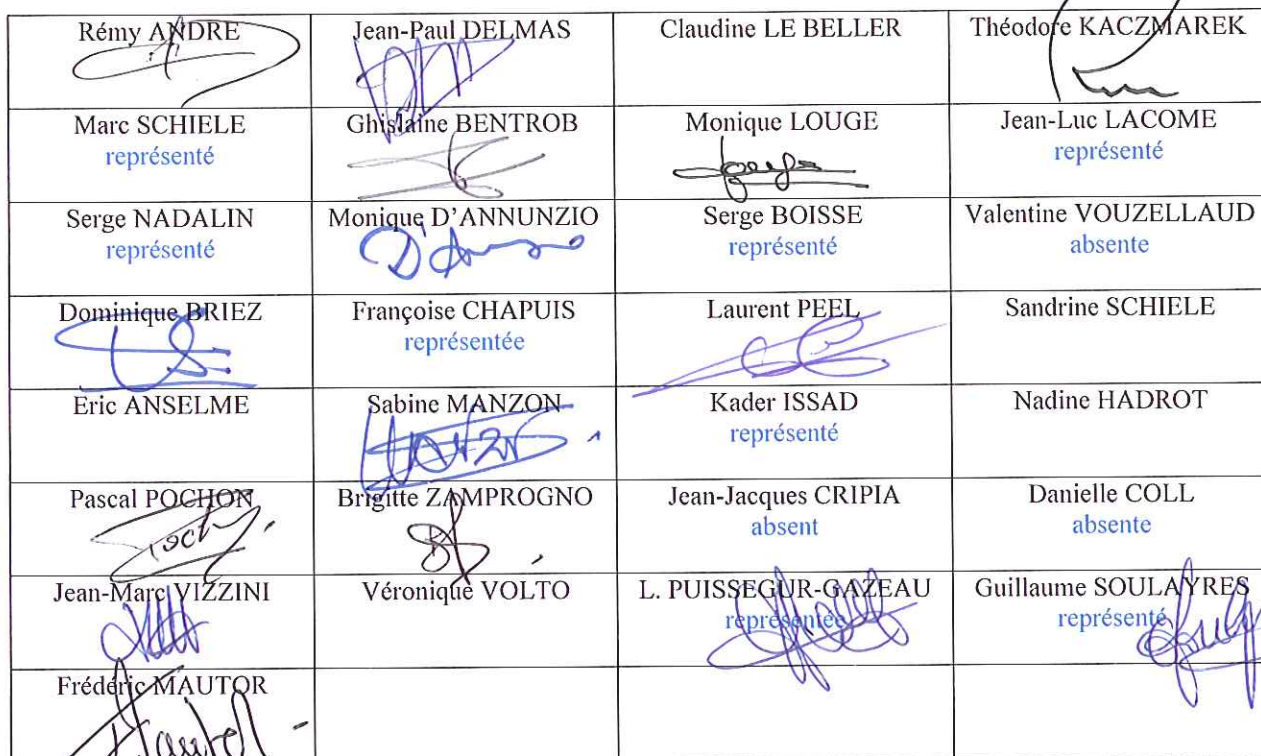 Rémy ANDRE
Jean-Paul DELMAS
Claudine LE BELLER
Théodore KACZMAREK
Marc SCHIELE
représenté
Ghislaine BENTROB
Monique LOUGE
Jean-Luc LACOME
représenté
Serge NADALIN
représenté
Monique D'ANNUNZIO
D'Annunzio
Serge BOISSE
représenté
Valentine VOUZELLAUD
absente
Dominique BRIEZ
Françoise CHAPUIS
représentée
Laurent PEEL
Sandrine SCHIELE
Eric ANSELME
Sabine MANZON
Kader ISSAD
représenté
Nadine HADROT
Pascal POCHON
Brigitte ZAMPROGNO
Jean-Jacques CRIPIA
absent
Danielle COLL
absente
Jean-Marc VIZZINI
Véronique VOLTO
L. PUISSEGUR-GAZEAU
représentée
Guillaume SOULAYRES
représenté
Frédéric MAUTOR